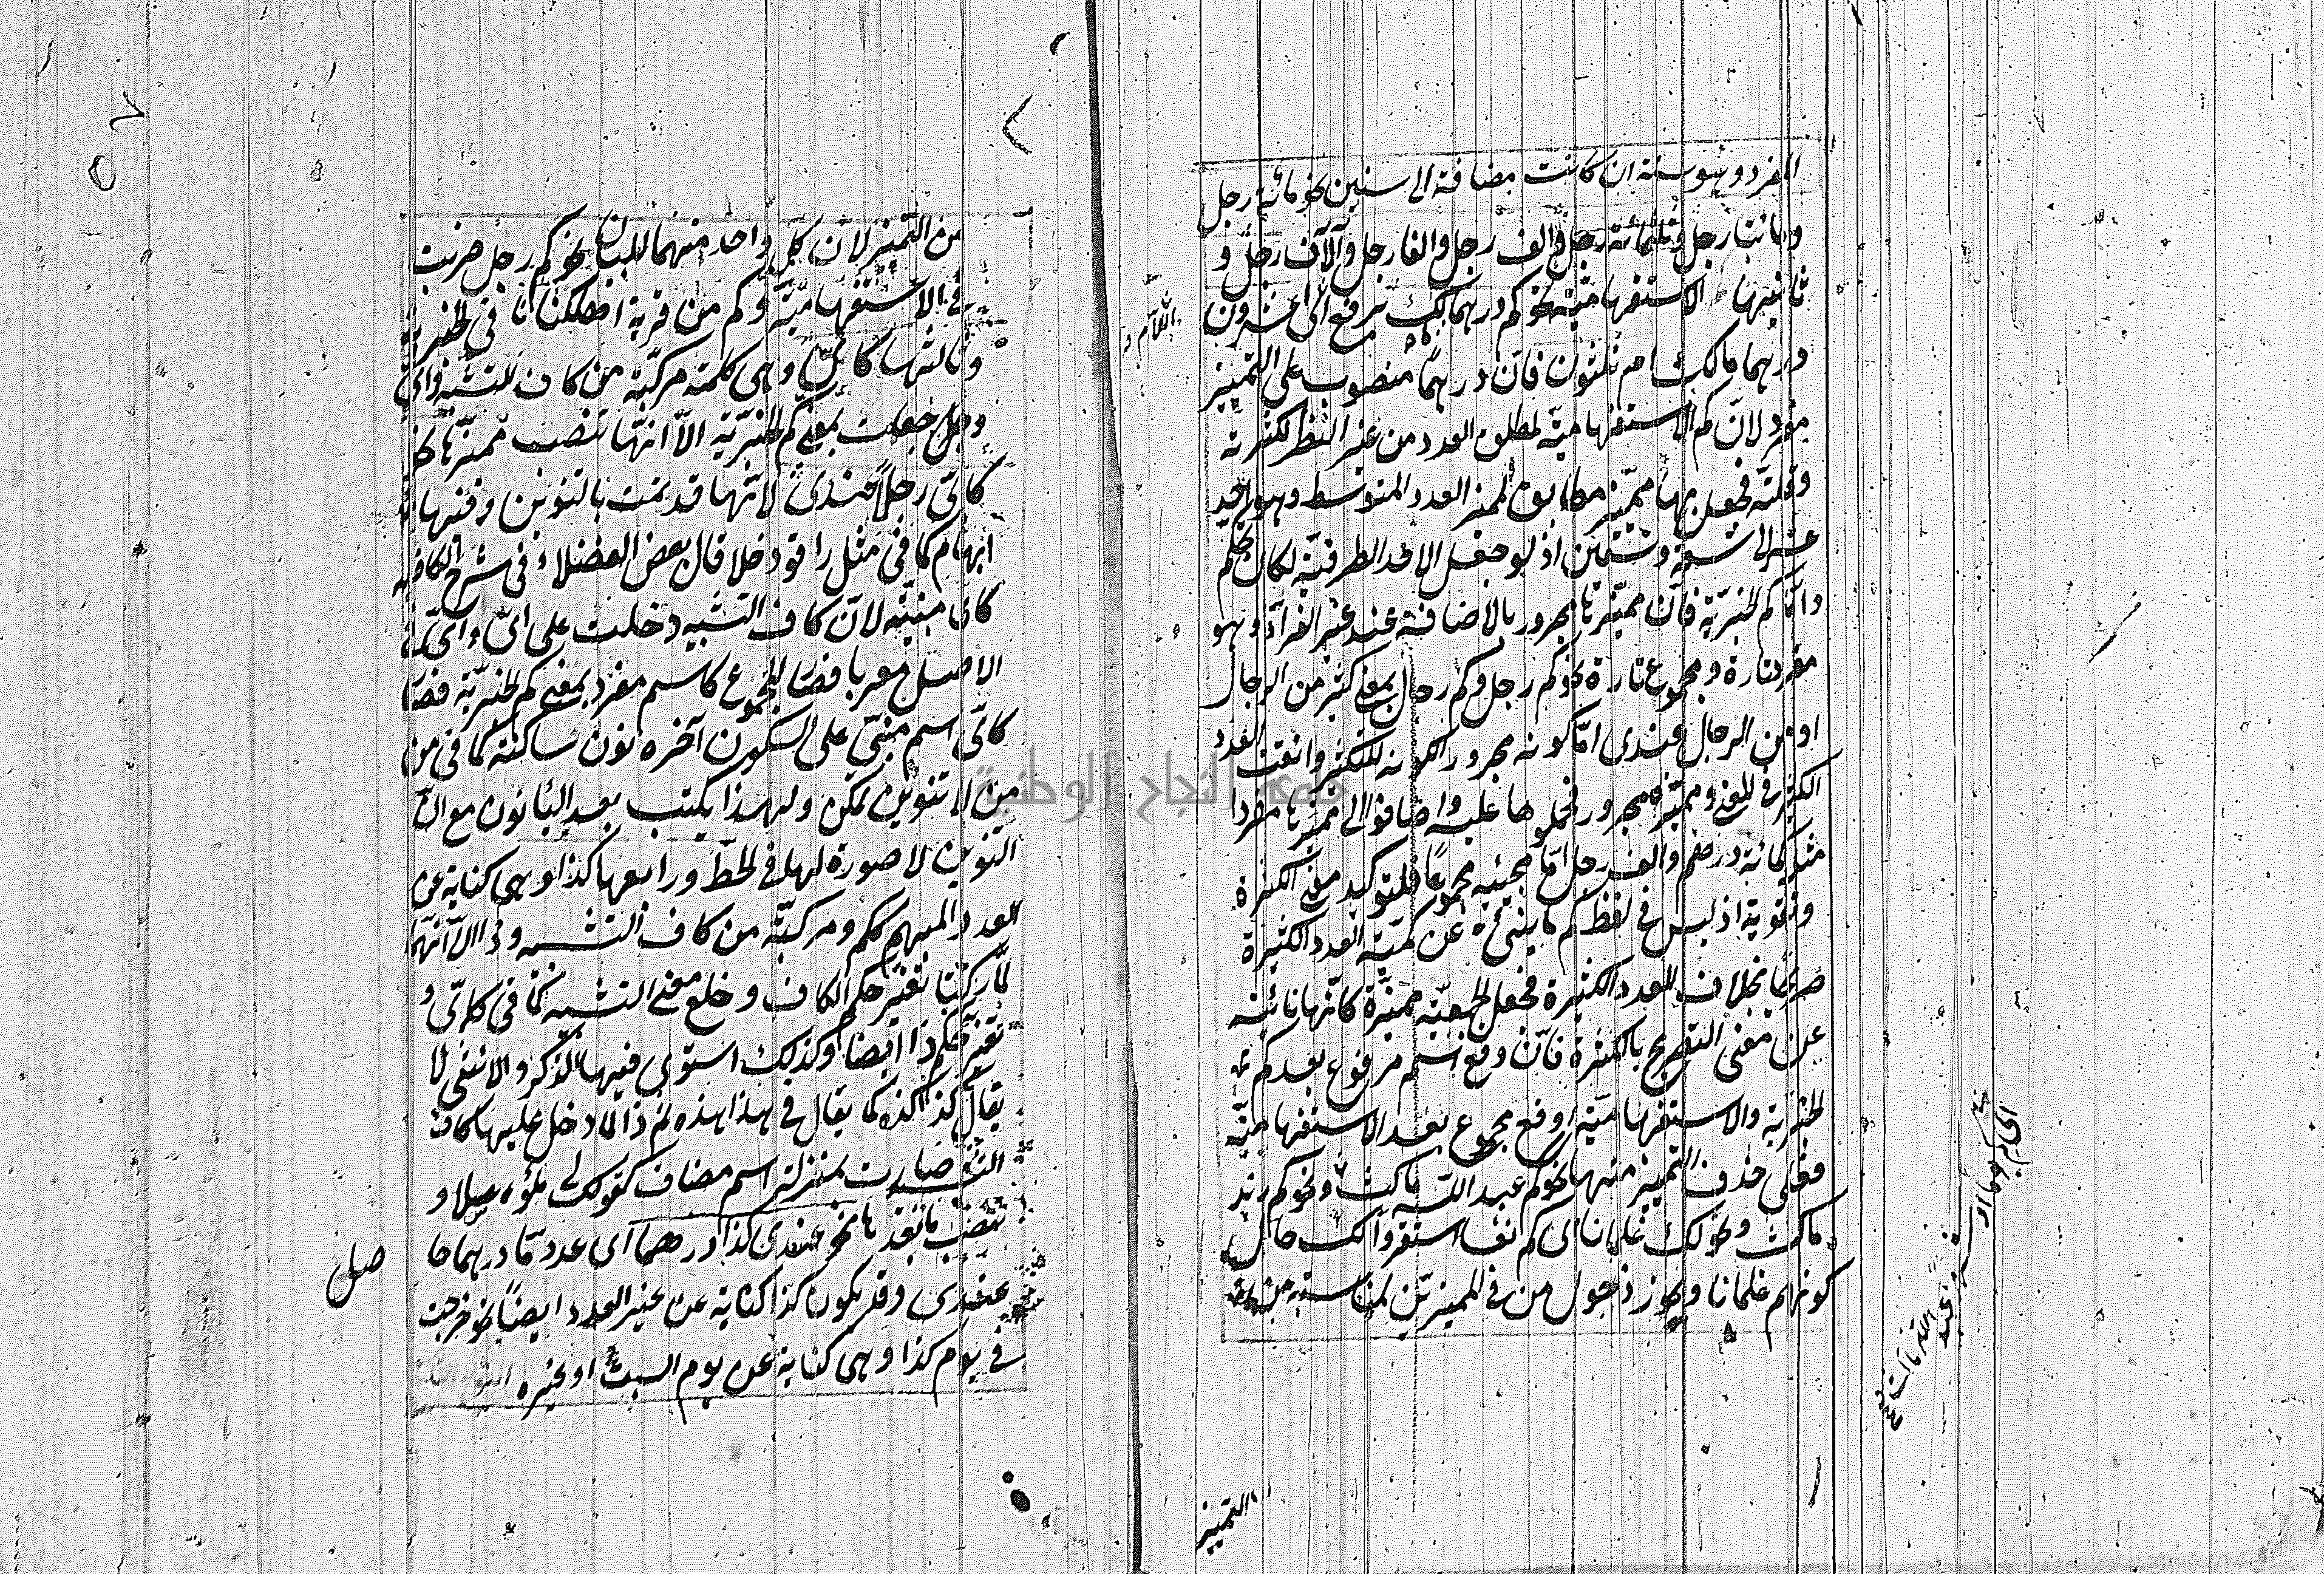 المفرد وهو ستة ان كانت مضافة الى سنين نحو مائة رجل
ومائتا رجل وثلثمائة رجل والف رجل والفا رجل وآلاف رجل و
ثانيها الاستفهامية نحو كم درهما لك برفع اى عشرون
درهما مالك ام ثلثون فان درهما منصوب على التمييز
مفرد لان كم الاستفهامية لمطلق العدد من غير النظر لكثرته
وقلته فجعل مميزها مطابق لمميز العدد المتوسط وهو احد
عشر الى تسعة وتسعين اذ لو جعل لاحد الطرفين لكان تحكم
واما كم الخبرية فان مميزها مجرور بالاضافة عند غير الفراء وهو
مفرد تارة ومجموع تارة نحو كم رجل وكم رجال بمعنى كثير من الرجال
او من الرجال عندى اما كونه مجرور لكونه للتكثير وافقت العدد
الكثير فى المعنى ومميزه مجرور فحملوها عليه واضافوا الى مميزها مفردا
مثل كمائة درهم والف رجل اما مجيئه مجموعا للتوكيد معنى الكثرة
وتقوية اذ ليس فى لفظ كم ما ينبئ عن كمية العدد الكثيرة
صريحا بخلاف العدد الكثيرة فجعل الجمعية مميزة كانها نائبة
عن معنى التصريح بالكثرة فان وقع اسم مرفوع بعد كم
الخبرية والاستفهامية او وقع مجموع بعد الاستفهامية
فعلى حذف التمييز منها نحو كم عبد الله ماكث ونحو كم زيد
ماكث ونحو لك غلمانا اى كم نفسا استقروا لك حال
كونهم غلمانا ويجوز دخول من فى المميزين لمناسبة
التمييز
من التمييز لان كل واحد منهما للبيان نحو كم من رجل ضربت
فى الاستفهامية وكم من قرية اهلكناها فى الخبرية
وثالثها كائن وهى كلمة مركبة من كاف التشبيه واى
وجعلت بمعنى كم الخبرية الا انها تنصب مميزها نحو
كائن رجلا عندى لانها قد تمت بالتنوين وفيها
ابهام كما فى مثل راقود خلا قال بعض الفضلاء فى شرح الكافية
كائن مبنية لان كاف التشبيه دخلت على اى واى فى
الاصل معربا فصار المجموع كاسم مفرد بمعنى كم الخبرية فصار
كائن اسم مبنى على السكون آخره نون ساكنة كما فى من
من لا تنوين تمكن ولهذا يكتب بعد الياء نون مع ان
التنوين لا صورة لها فى الخط ورابعها كذا وهى كناية عن
العدد المبهم ككم ومركبة من كاف التشبيه وذا الا انهما
لما ركبتا تغير حكم الكاف وخلع معنى التشبيه كما فى كائن و
تغير حكم ذا ايضا وكذلك استوى فيها المذكر والانثى لا
يقال كذا كذه كما يقال فى هذا هذه ثم ذا لما دخل عليها كاف
التشبيه صارت بمنزلة اسم مضاف كقولك لى ملؤه عسلا و
تنصب ما بعدها نحو عندى كذا درهما اى عدد ما درهما حا
صل
عندى وقد يكون كذا كناية عن غير العدد ايضا نحو خرجت
فى يوم كذا وهى كناية عن يوم السبت او غيره
جامعة النجاح الوطنية